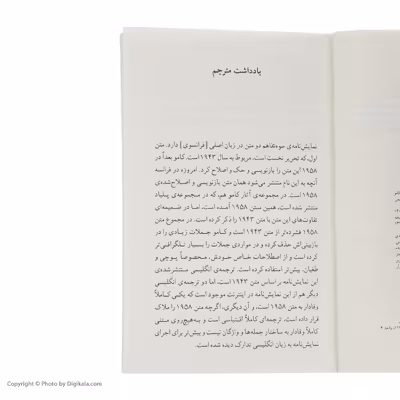 یادداشت مترجم
نمایش‌نامه‌ی سوءتفاهم دو متن در زبان اصلی [فرانسوی] دارد. متن
اول، که تحریر نخست است، مربوط به سال ۱۹۴۳ است. کامو بعداً در
۱۹۵۸ این متن را بازنویسی و حک و اصلاح کرد. امروزه در فرانسه
آنچه به این نام منتشر می‌شود همان متن بازنویسی و اصلاح‌شده‌ی
۱۹۵۸ است. در مجموعه‌ی آثار کامو هم، که در مجموعه‌ی پلیاد
منتشر شده است، همین متن ۱۹۵۸ آمده است، اما در ضمیمه‌ای
تفاوت‌های این متن با متن ۱۹۴۳ را ذکر کرده است. در مجموع متن
۱۹۵۸ فشرده‌تر از متن ۱۹۴۳ است و کامو جملات زیادی را در
بازبینی‌اش حذف کرده و در مواردی جملات را بسیار تلگرافی‌تر
کرده است و از اصطلاحات خاص خودش، مخصوصاً پوچی و
طغیان، بیش‌تر استفاده کرده است. ترجمه‌ی انگلیسی منتشرشده‌ی
این نمایش‌نامه بر اساس متن ۱۹۴۳ است، اما دو ترجمه‌ی انگلیسی
دیگر هم از این نمایش‌نامه در اینترنت موجود است که یکی کاملاً
وفادار به متن ۱۹۵۸ است، و آن دیگری، اگرچه متن ۱۹۵۸ را ملاک
قرار داده است، ترجمه‌ی کاملاً اقتباسی است و به‌هیچ‌روی متنی
کاملاً وفادار به ساختار جمله‌ها و واژگان نیست و بیش‌تر برای اجرای
نمایش‌نامه به زبان انگلیسی تدارک دیده شده است.
Copyright © Photo by Digikala.com